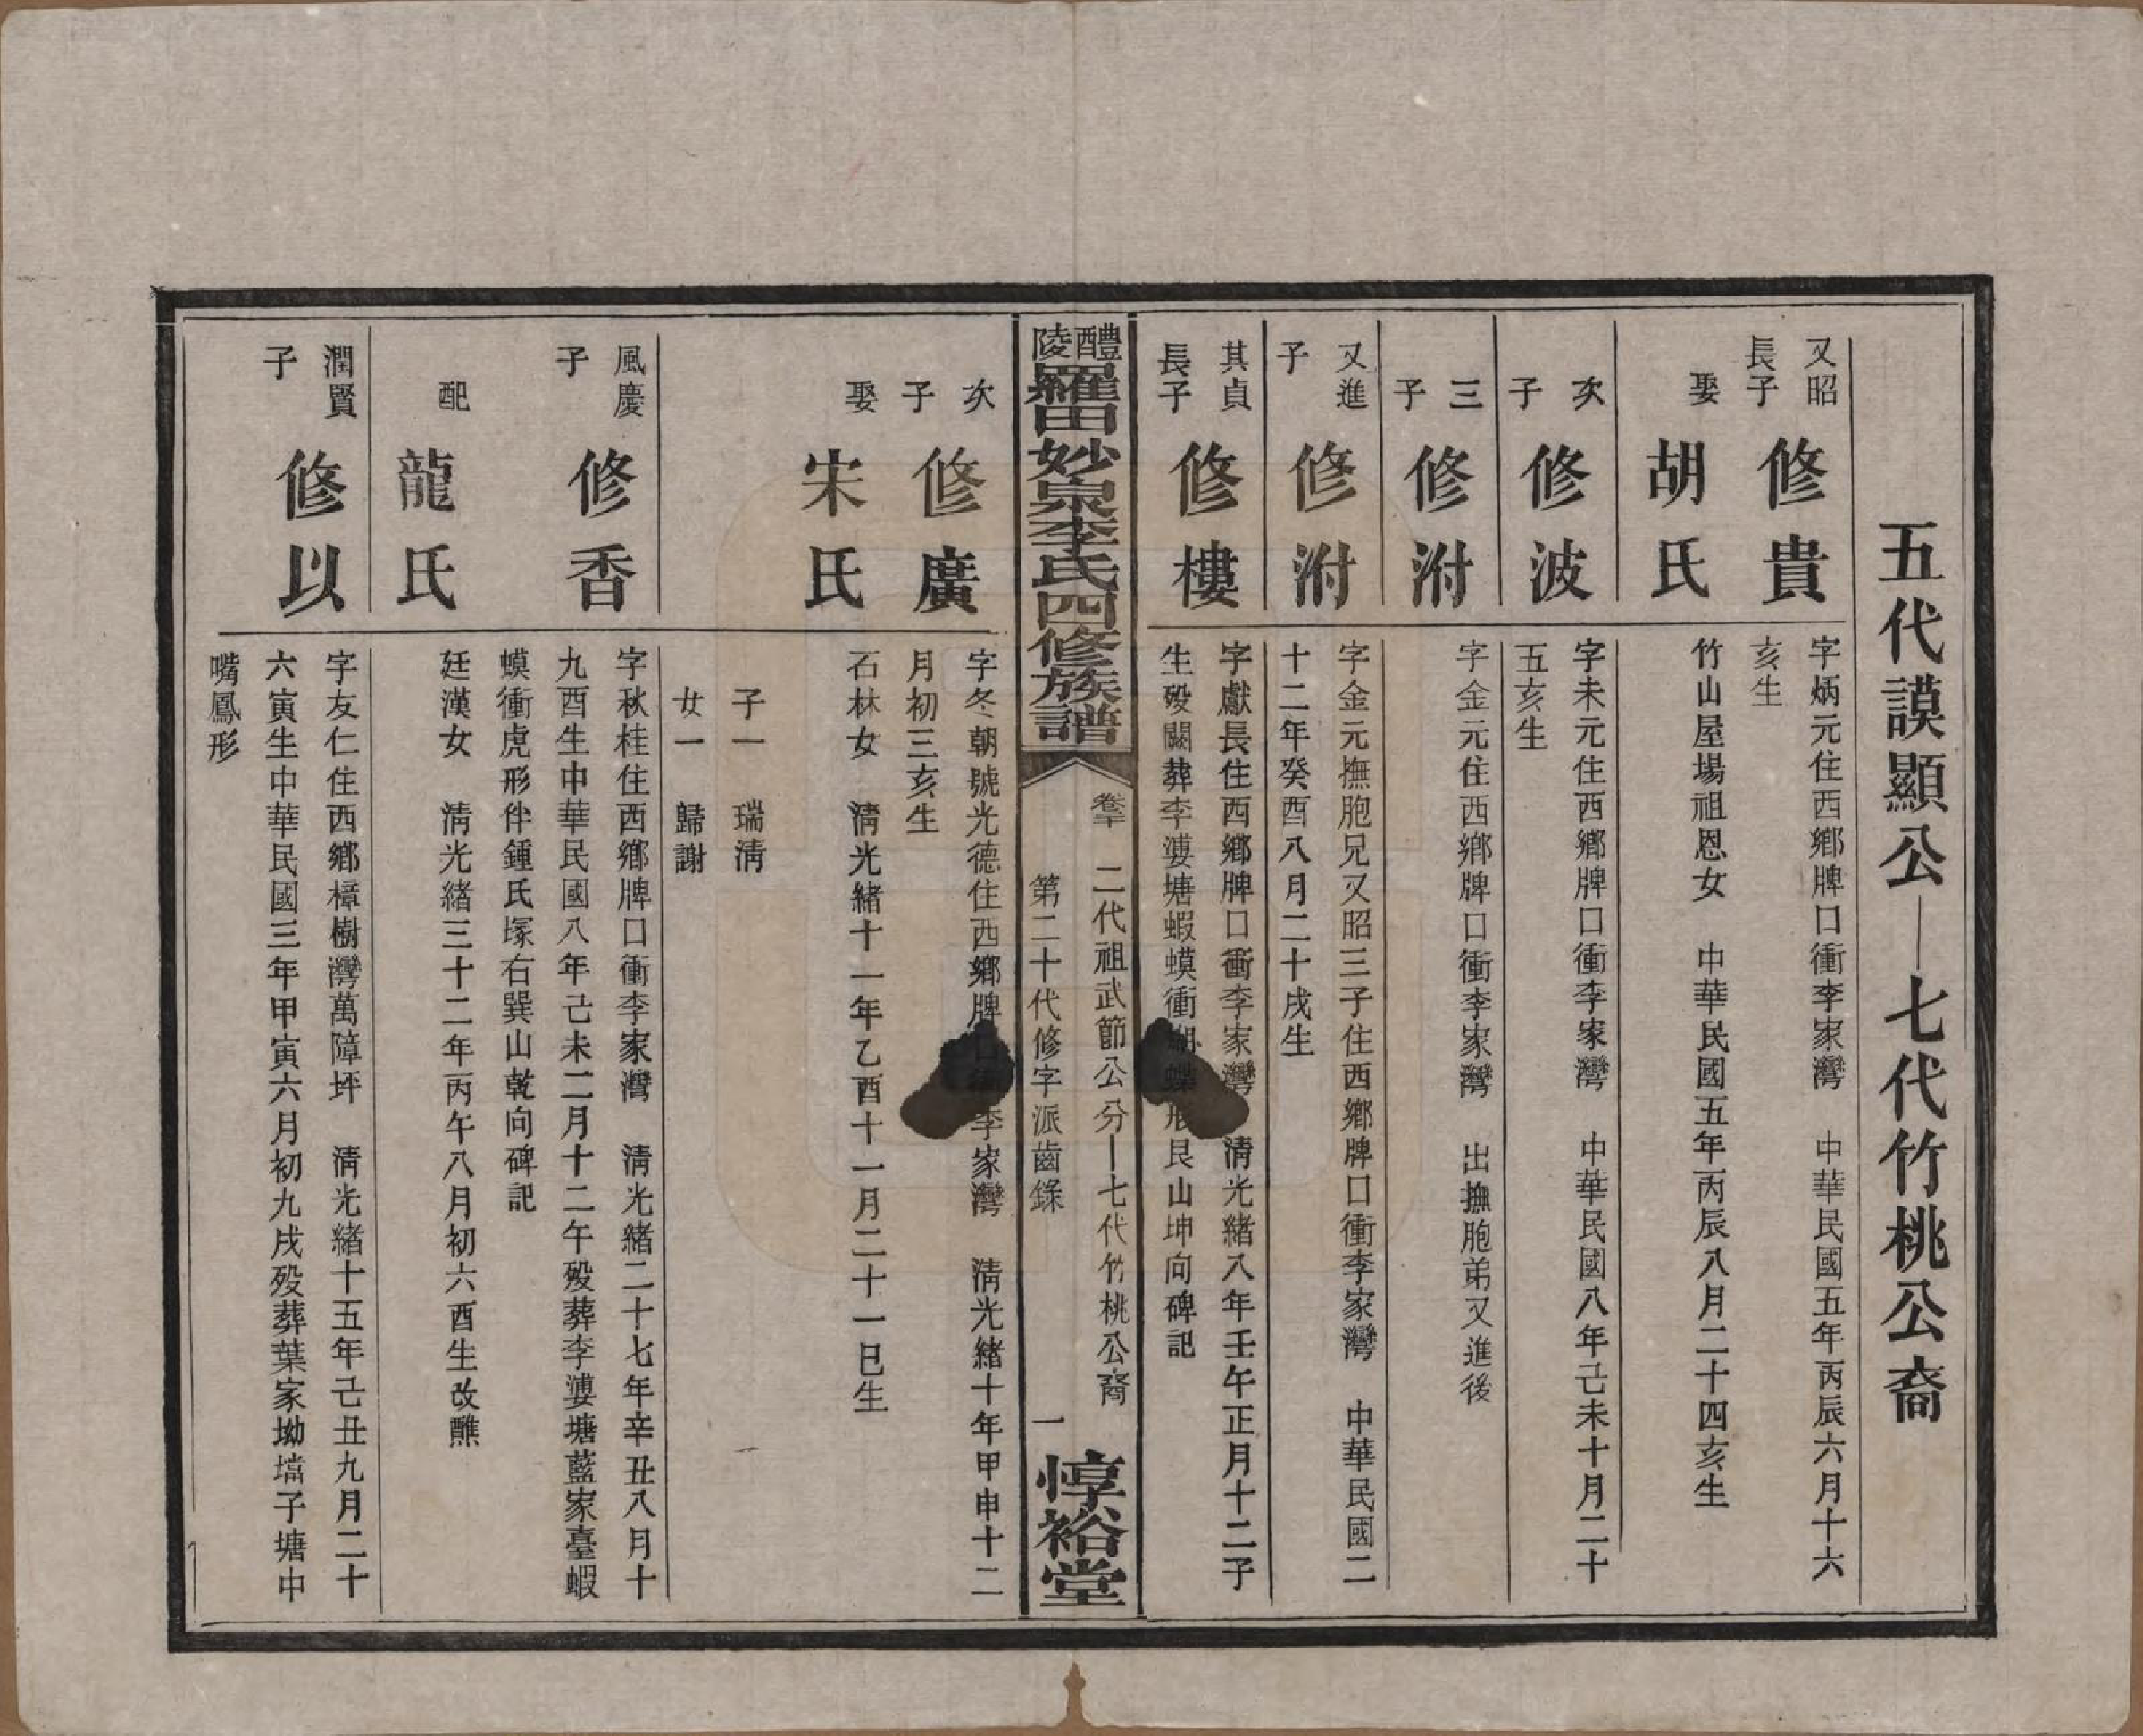 五代謨顯公—七代竹桃公裔
又昭長子
修貴
字炳元住西鄉牌口衝李家灣　中華民國五年丙辰六月十六
亥生
娶
胡氏
竹山屋場祖恩女　中華民國五年丙辰八月二十四亥生
次子
修波
字未元住西鄉牌口衝李家灣　中華民國八年己未十月二十
五亥生
三子
修泭
字金元住西鄉牌口衝李家灣　出撫胞弟又進後
又進子
修泭
字金元撫胞兄又昭三子住西鄉牌口衝李家灣　中華民國二
十二年癸酉八月二十戌生
其貞長子
修樓
字獻長住西鄉牌口衝李家灣　清光緒八年壬午正月十二子
生歿闕葬李漊塘蝦蟆衝蝴蝶形艮山坤向碑記
醴陵羅田妙泉李氏四修族譜
卷二十　二代祖武節公分—七代竹桃公裔
第二十代修字派齒錄
一
惇裕堂
次子
修廣
字冬朝號光德住西鄉牌口衝李家灣　清光緒十年甲申十二
月初三亥生
娶
宋氏
石林女　清光緒十一年乙酉十一月二十一巳生
子一　瑞清
女一　歸謝
風慶子
修香
字秋桂住西鄉牌口衝李家灣　清光緒二十七年辛丑八月十
九酉生中華民國八年己未二月十二午歿葬李漊塘藍家臺蝦
蟆衝虎形伴鍾氏塚右巽山乾向碑記
配
龍氏
廷漢女　清光緒三十二年丙午八月初六酉生改醮
潤賢子
修以
字友仁住西鄉樟樹灣萬障坪　清光緒十五年己丑九月二十
六寅生中華民國三年甲寅六月初九戌歿葬葉家坳壋子塘中
嘴鳳形